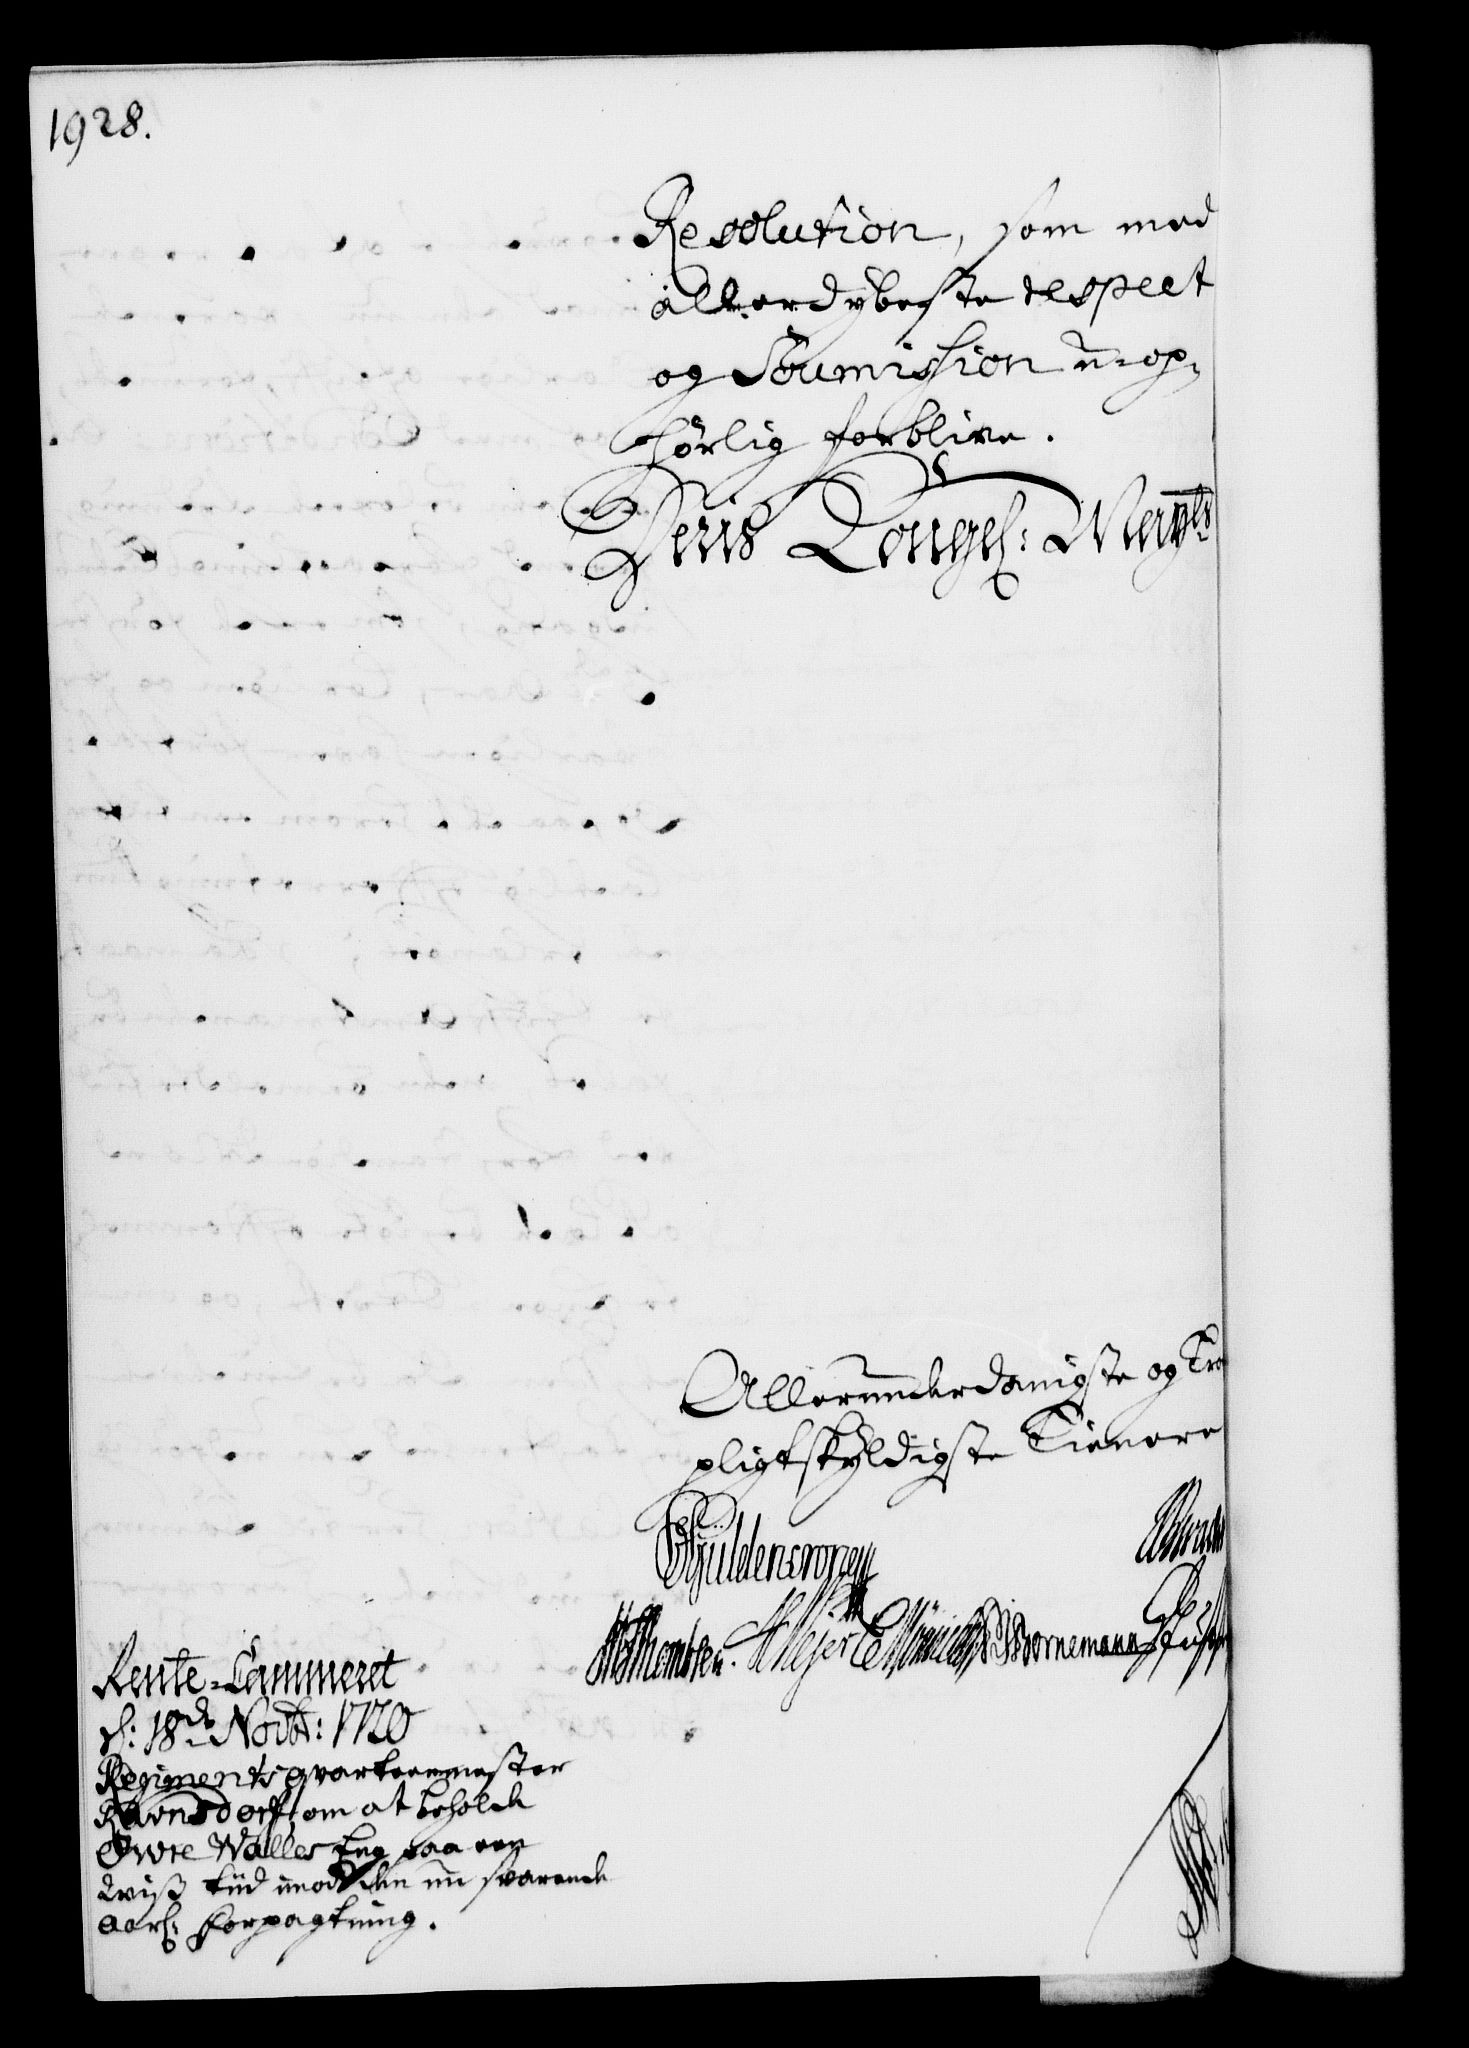 1928.
Resolution, som med
allerdybeste respect
og Soumission u-op-
hörlig forblive.
Deris Kongel: Mayts
Allerunderdanigste og Tro
pligtskyldigste Tienere
Gÿldencrone
Thomsen. Meyer Bornemann
Rente-Cammeret
d: 18de Novbr: 1720
Regiments qvarteermester
Ravnsdorff, om at beholde
Øvre Walles Eng paa een
Wiss tiid imod den nu svarende
aarl: Forpagtning.